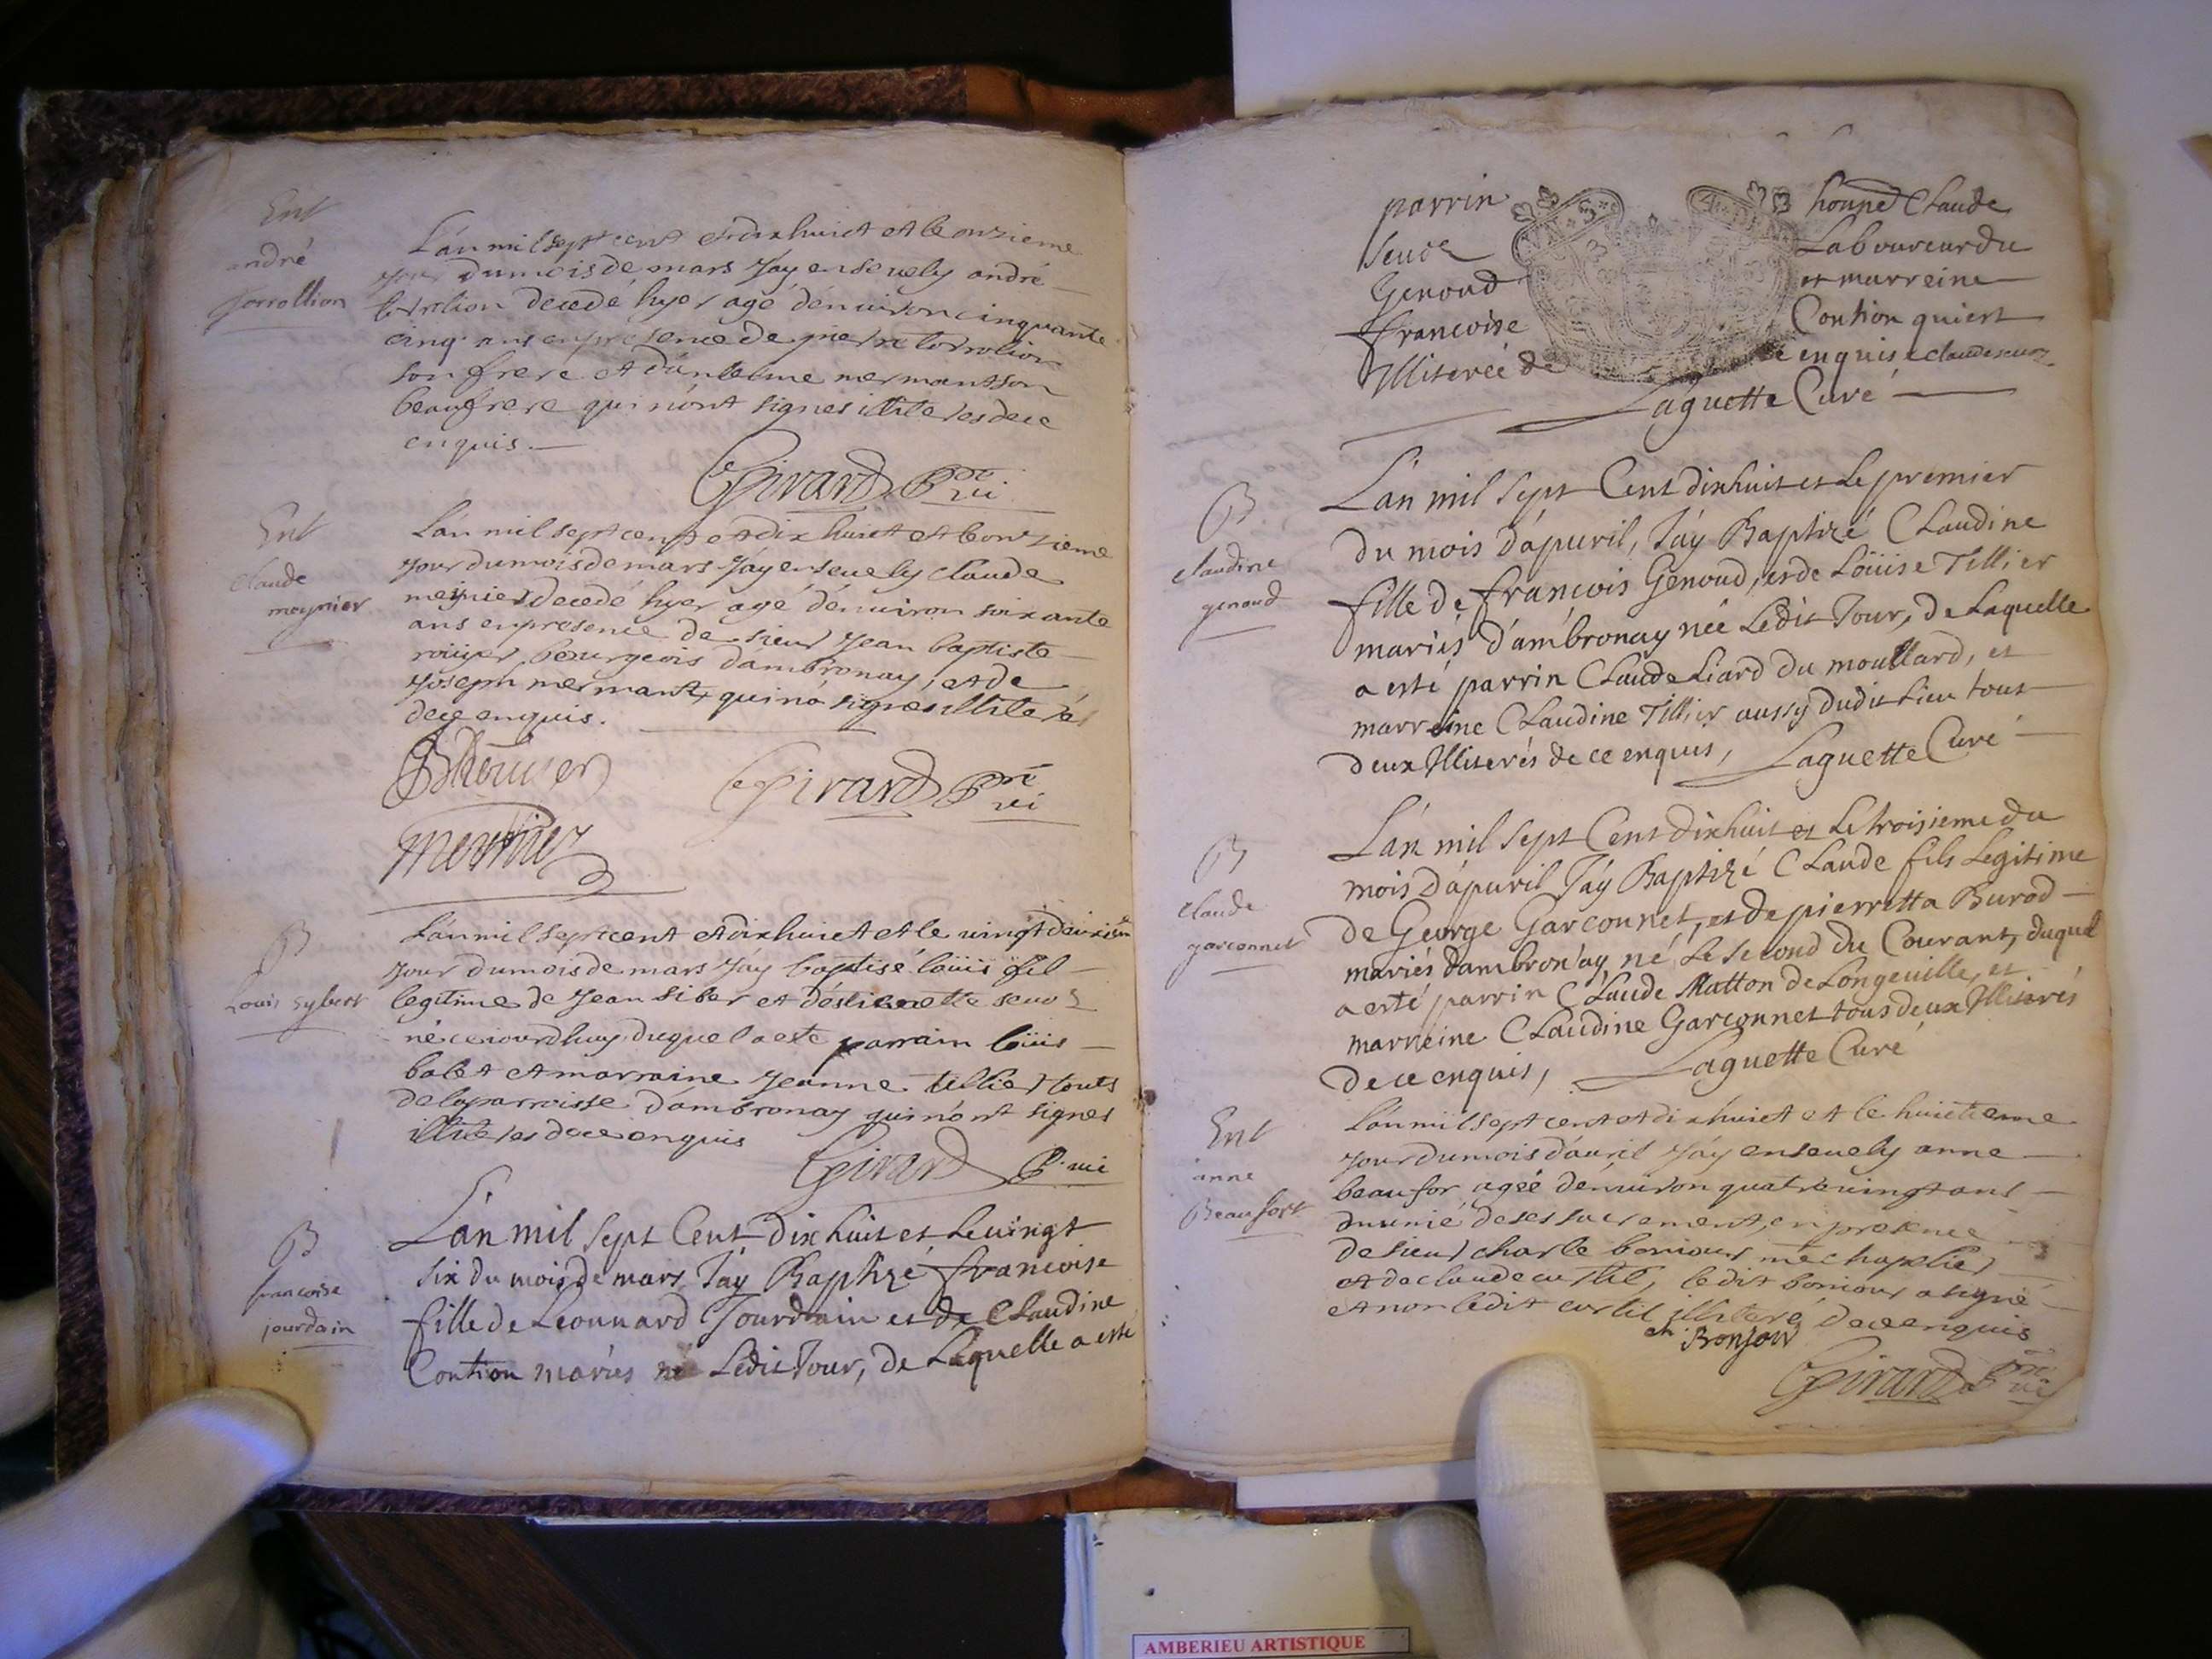 Ent
andré
Torrollion
L'an mil sept cent et dix huict et le onzieme
jour du mois de mars Jáy ensevely andré
torrolion decedé hyer agé d'environ cinquante
cinq ans en presence de pierre torrolion
son frere et d'anteme mermant son
beaufrere qui n'ont signes illiteres de ce
enquis.
Girard Ptre vi
Ent
claude
moynier
L'an mil sept cent et dix huict et le onzieme
jour du mois de mars Jáy ensevely claude
meynier decedé hyer agé d'environ soixante
ans en presence de sieur Jean baptiste
rouyer, bourgeois d'ambronay, et de
Joseph mermant, qui n'o signes illiterés
de ce enquis.
Girard Ptre vi
B
Louis Sybert
L'an mil sept cent et dix huict et le vingt deuxiem
jour du mois de mars Jáy baptisé loüis fil
legitime de Jean siber et d'estiennette sevoz
né ce jourdhuy duquel a esté parrain loüis
babet et marraine Jeanne tillier touts
de la parroisse d'ambronay qui n'ont signes
illiteres de ce enquis
Girard P. vi
B
francoise
jourdain
L'an mil Sept Cent Dix huit et Le vingt
six du mois de mars Jáy Baptizé francoise
fille de Leonnard Jourdain et de Claudine
Contion mariés né Ledit Jour, de Laquelle a esté
parrin honnete Claude
Sevoz Laboureur du
Genoud et marreine
francoise Contion qui est
Illiterée de ce enquis claude sevoz
Laguette Curé
B
claudine
genoud
L'an mil Sept Cent dixhuit et Le premier
du mois d'apuril, Jáy Baptizé Claudine
fille de francois Genoud, et de Loüise Tillier
mariés d'ambronay née Ledit Jour, de Laquelle
a esté parrin Claude Liard du moullard, et
marreine Claudine Tillier aussy dudit Lieu tout
deux Illiterés de ce enquis, Laguette Curé
B
claude
garconnet
L'an mil Sept Cent Dixhuit et Le troisieme du
mois D'apuril Jáy Baptizé Claude fils Legitime
de George Garconnet, et de pierretta Burod
mariés d'ambronay né Le second du Courant, duquel
a esté parrin Claude Matton de Longeville, et
marreine Claudine Garconnet tous deux Illiterés
de ce enquis, Laguette Curé
Ent
anne
Beaufort
L'an mil sept cent et dix huict et le huictieme
jour du mois d'auril Jáy ensevely anne
beaufor agée d'environ quatre vingt ans
munie de ses sacrement, en presence
de sieur charle bonjour me chaplier
et de claude curtil, le dit bonjour a signé
et non ledit curtil illiteré de ce enquis
ch. Bonjour
Girard Ptre vi
AMBERIEU ARTISTIQUE